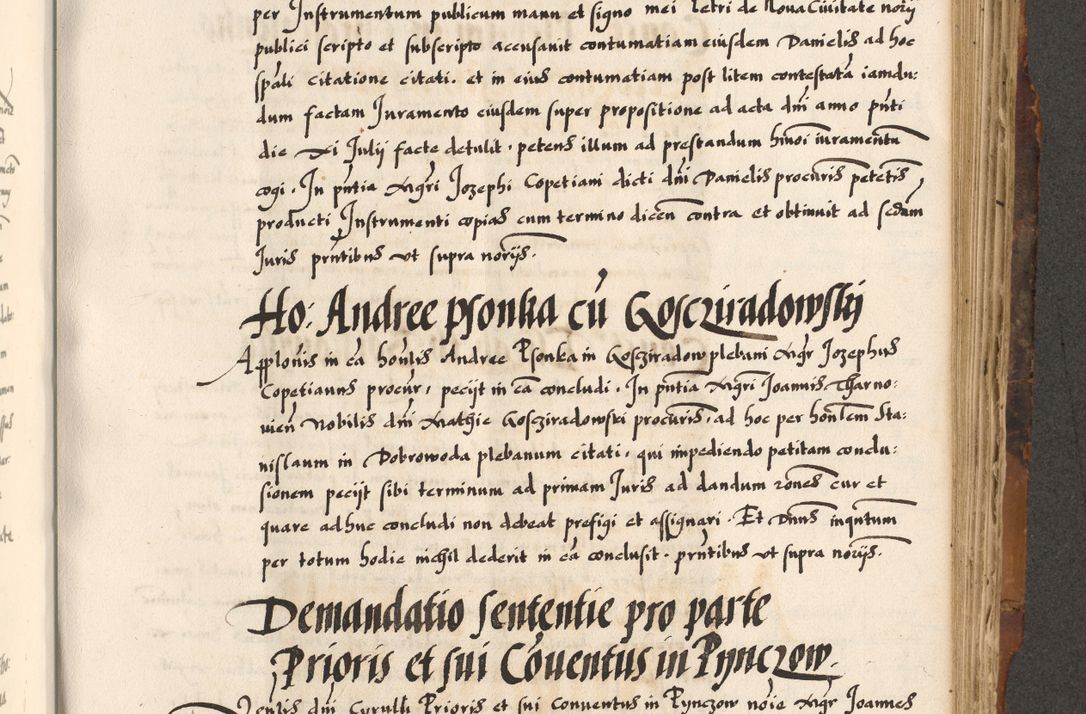 per Instrumentum publicum manu et signo mei Petri de Nova Civitate norij
publici scripto et subscripto accusavit contumatiam eiusdem Danielis ad hoc
spali citatione citati. et in eius contumatiam post litem contestatã iamdu:
dum factam Juramento eiusdem super propositione ad acta dni anno pnti
die XI Julij facte detulit. petens illum ad prestandum hmoi iuramentũ
cogi. In pntia Mgri Jozephi Copetiani dicti dni Danielis procuris petetis,
producti Instrumenti copias cum termino dicen contra et obtinuit ad scdam
Juris prntibus ut supra norijs.
Ho: Andree psonka cũ Gosczіradowskj
Applonis in cã honlis Andree Psonka in Gosziradow plebani Mgr Jozephus
Copetianus procur, pecijt in cã concludi. In pntia Mgri Joannis Tharno:
vien Nobilis dni Mathie Gosziradowski procuris, ad hoc per honlem Sta:
nislaum in Dobrowoda plebanum citati, qui impediendo petitam conclu:
sionem pecijt sibi terminum ad primam Juris ad dandum rones cur et
quare adhuc concludi non debeat prefigi et assignari. Et Dnus inqutum
per totum hodie nichil dederit in cã conclusit. prntibus ut supra norijs.
Demandatio sententie pro parte
Prioris et sui Cõventus in Pynczow.
dni Cyrulli Prioris et sui Conventus in Pynczow noie Mgr Joannes